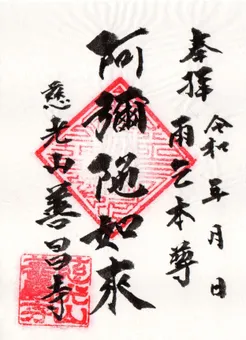 奉拝 令和 年 月 日
雨乞本尊
阿彌陀如來
慈光山善昌寺